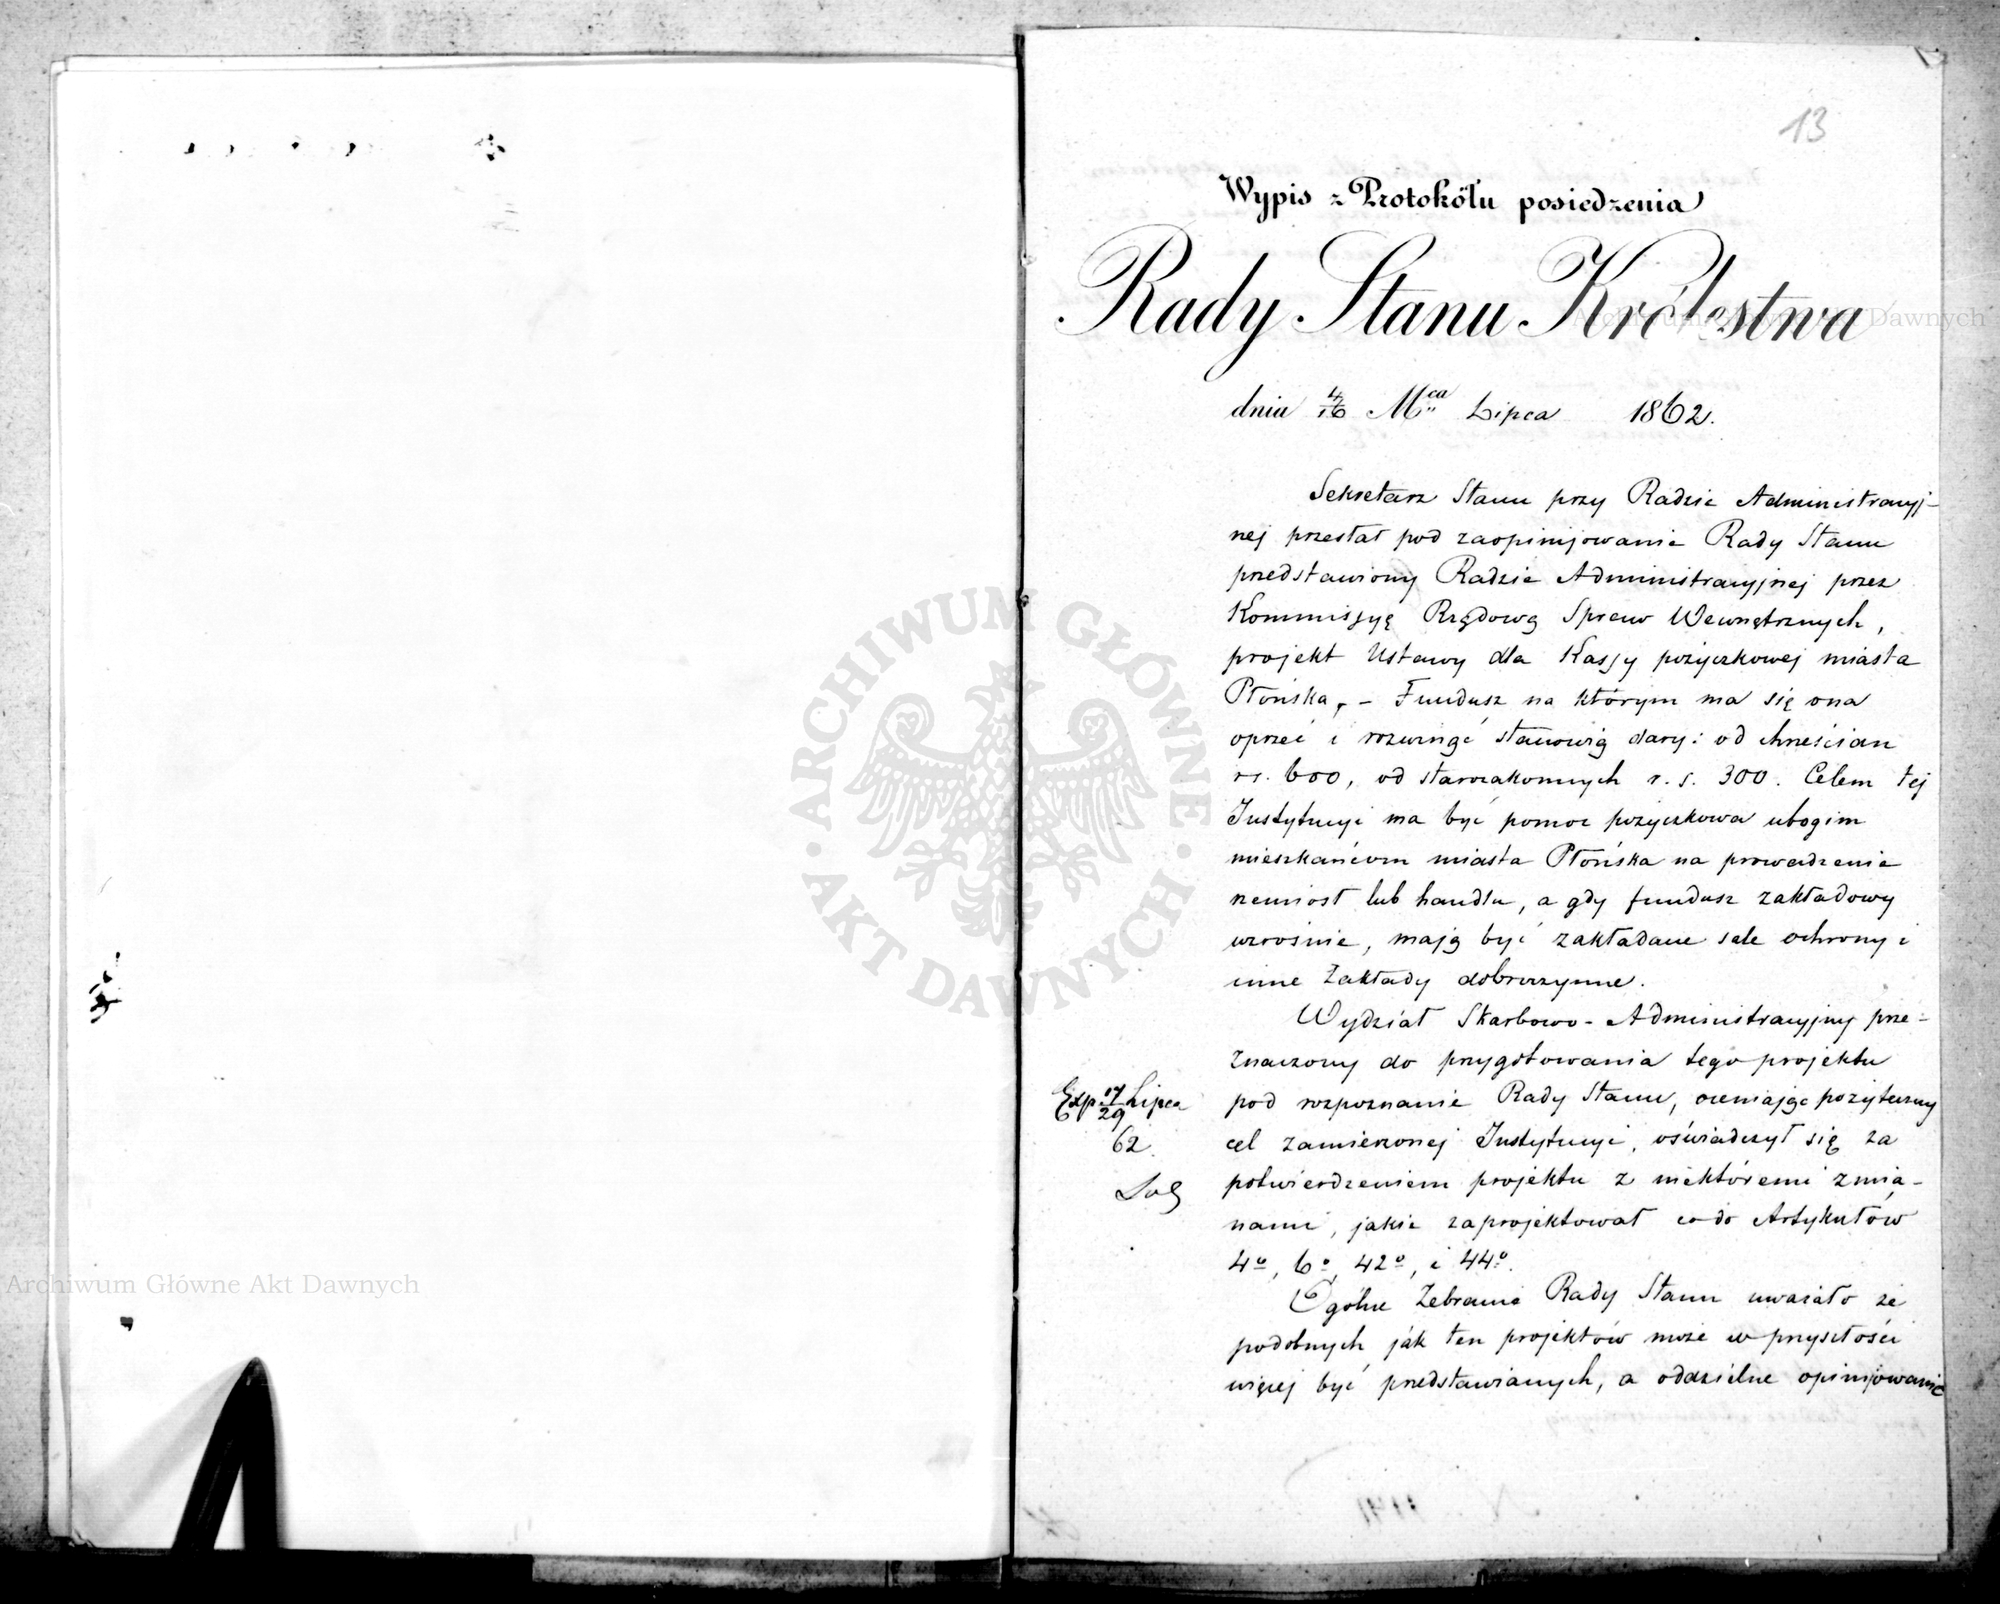 13
Wypis z Protokółu posiedzenia
Rady Stanu Królestwa
dnia 4/16 Mca Lipca 1862.
Sekretarz Stanu przy Radzie Administracyj-
nej przesłał pod zaopinijowanie Rady Stanu
przedstawiony Radzie Administracyjnej przez
Kommissyę Rządową Spraw Wewnętrznych,
projekt Ustawy dla Kassy pożyczkowej miasta
Płońska, - Fundusz na którym ma się ona
oprzeć i rozwinąć stanowią dary: od chrześcian
rs. 600, od starozakonnych r. s. 300. Celem tej
Instytucyi ma być pomoc pożyczkowa ubogim
mieszkańcom miasta Płońska na prowadzenie
rzemiosł lub handlu, a gdy fundusz zakładowy
wzrośnie, mają być zakładane sale ochrony i
inne Zakłady dobroczynne.
Wydział Skarbowo-Administracyjny prze-
znaczony do przygotowania tego projektu
pod rozpoznanie Rady Stanu, oceniając pożyteczny
cel zamierzonej Instytucyi, oświadczył się za
potwierdzeniem projektu z niektóremi zmia-
nami, jakie zaprojektował co do Artykułów
4o, 6o, 42o, i 44o.
Ogólne Zebranie Rady Stanu uważało że
podobnych jak ten projektów może w przyszłości
więcej być przedstawianych, a oddzielne opinijowanie
Exp. 17/29 Lipca
62.
Archiwum Główne Akt Dawnych
Archiwum Główne Akt Dawnych
ARCHIWUM GŁÓWNE · AKT DAWNYCH ·